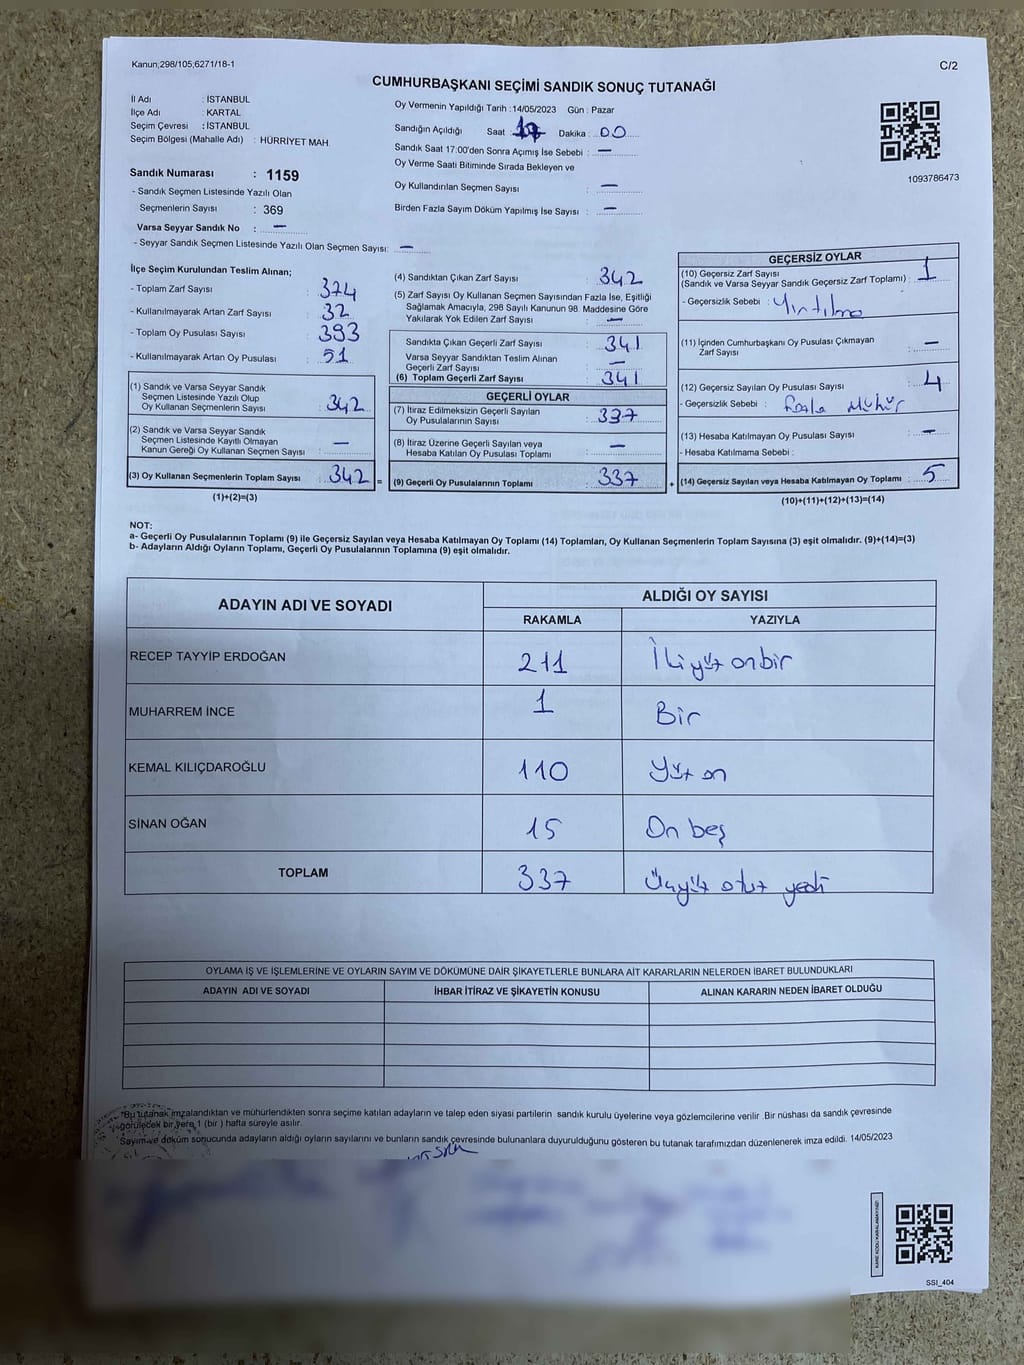 Kanun;298/105;6271/18-1
C/2
CUMHURBAŞKANI SEÇİMİ SANDIK SONUÇ TUTANAĞI
İl Adı : İSTANBUL
İlçe Adı : KARTAL
Seçim Çevresi : İSTANBUL
Seçim Bölgesi (Mahalle Adı) : HÜRRİYET MAH.
Sandık Numarası : 1159
- Sandık Seçmen Listesinde Yazılı Olan
Seçmenlerin Sayısı : 369
Varsa Seyyar Sandık No : —
- Seyyar Sandık Seçmen Listesinde Yazılı Olan Seçmen Sayısı: —
Oy Vermenin Yapıldığı Tarih :14/05/2023 Gün : Pazar
Sandığın Açıldığı Saat 17 Dakika : 00
Sandık Saat 17:00'den Sonra Açımış İse Sebebi : —
Oy Verme Saati Bitiminde Sırada Bekleyen ve
Oy Kullandırılan Seçmen Sayısı : —
Birden Fazla Sayım Döküm Yapılmış İse Sayısı : —
1093786473
İlçe Seçim Kurulundan Teslim Alınan;
- Toplam Zarf Sayısı : 374
- Kullanılmayarak Artan Zarf Sayısı : 32
- Toplam Oy Pusulası Sayısı : 393
- Kullanılmayarak Artan Oy Pusulası : 51
(1) Sandık ve Varsa Seyyar Sandık
Seçmen Listesinde Yazılı Olup
Oy Kullanan Seçmenlerin Sayısı : 342
(2) Sandık ve Varsa Seyyar Sandık
Seçmen Listesinde Kayıtlı Olmayan
Kanun Gereği Oy Kullanan Seçmen Sayısı : —
(3) Oy Kullanan Seçmenlerin Toplam Sayısı : 342 =
(1)+(2)=(3)
(4) Sandıktan Çıkan Zarf Sayısı : 342
(5) Zarf Sayısı Oy Kullanan Seçmen Sayısından Fazla İse, Eşitliği
Sağlamak Amacıyla, 298 Sayılı Kanunun 98. Maddesine Göre
Yakılarak Yok Edilen Zarf Sayısı : —
Sandıkta Çıkan Geçerli Zarf Sayısı : 341
Varsa Seyyar Sandıktan Teslim Alınan
Geçerli Zarf Sayısı : —
(6) Toplam Geçerli Zarf Sayısı : 341
GEÇERLİ OYLAR
(7) İtiraz Edilmeksizin Geçerli Sayılan
Oy Pusulalarının Sayısı : 337
(8) İtiraz Üzerine Geçerli Sayılan veya
Hesaba Katılan Oy Pusulası Toplamı : —
(9) Geçerli Oy Pusulalarının Toplamı : 337 +
GEÇERSİZ OYLAR
(10) Geçersiz Zarf Sayısı
(Sandık ve Varsa Seyyar Sandık Geçersiz Zarf Toplamı) : 1
- Geçersizlik Sebebi : Yırtılma
(11) İçinden Cumhurbaşkanı Oy Pusulası Çıkmayan
Zarf Sayısı : —
(12) Geçersiz Sayılan Oy Pusulası Sayısı : 4
- Geçersizlik Sebebi : Fazla Mühür
(13) Hesaba Katılmayan Oy Pusulası Sayısı : —
- Hesaba Katılmama Sebebi :
(14) Geçersiz Sayılan veya Hesaba Katılmayan Oy Toplamı : 5
(10)+(11)+(12)+(13)=(14)
NOT:
a- Geçerli Oy Pusulalarının Toplamı (9) ile Geçersiz Sayılan veya Hesaba Katılmayan Oy Toplamı (14) Toplamları, Oy Kullanan Seçmenlerin Toplam Sayısına (3) eşit olmalıdır. (9)+(14)=(3)
b- Adayların Aldığı Oyların Toplamı, Geçerli Oy Pusulalarının Toplamına (9) eşit olmalıdır.
ADAYIN ADI VE SOYADI
ALDIĞI OY SAYISI
RAKAMLA YAZIYLA
RECEP TAYYİP ERDOĞAN 211 İkiyüz onbir
MUHARREM İNCE 1 Bir
KEMAL KILIÇDAROĞLU 110 Yüz on
SİNAN OĞAN 15 On beş
TOPLAM 337 Üçyüz otuz yedi
OYLAMA İŞ VE İŞLEMLERİNE VE OYLARIN SAYIM VE DÖKÜMÜNE DAİR ŞİKAYETLERLE BUNLARA AİT KARARLARIN NELERDEN İBARET BULUNDUKLARI
ADAYIN ADI VE SOYADI İHBAR İTİRAZ VE ŞİKAYETİN KONUSU ALINAN KARARIN NEDEN İBARET OLDUĞU
"Bu tutanak imzalandıktan ve mühürlendikten sonra seçime katılan adayların ve talep eden siyasi partilerin sandık kurulu üyelerine veya gözlemcilerine verilir .Bir nüshası da sandık çevresinde
görülecek bir yere 1 (bir ) hafta süreyle asılır.
Sayım ve döküm sonucunda adayların aldığı oyların sayılarını ve bunların sandık çevresinde bulunanlara duyurulduğunu gösteren bu tutanak tarafımızdan düzenlenerek imza edildi. 14/05/2023
KARE KODU KARALAMAYINIZ!
SSI_404